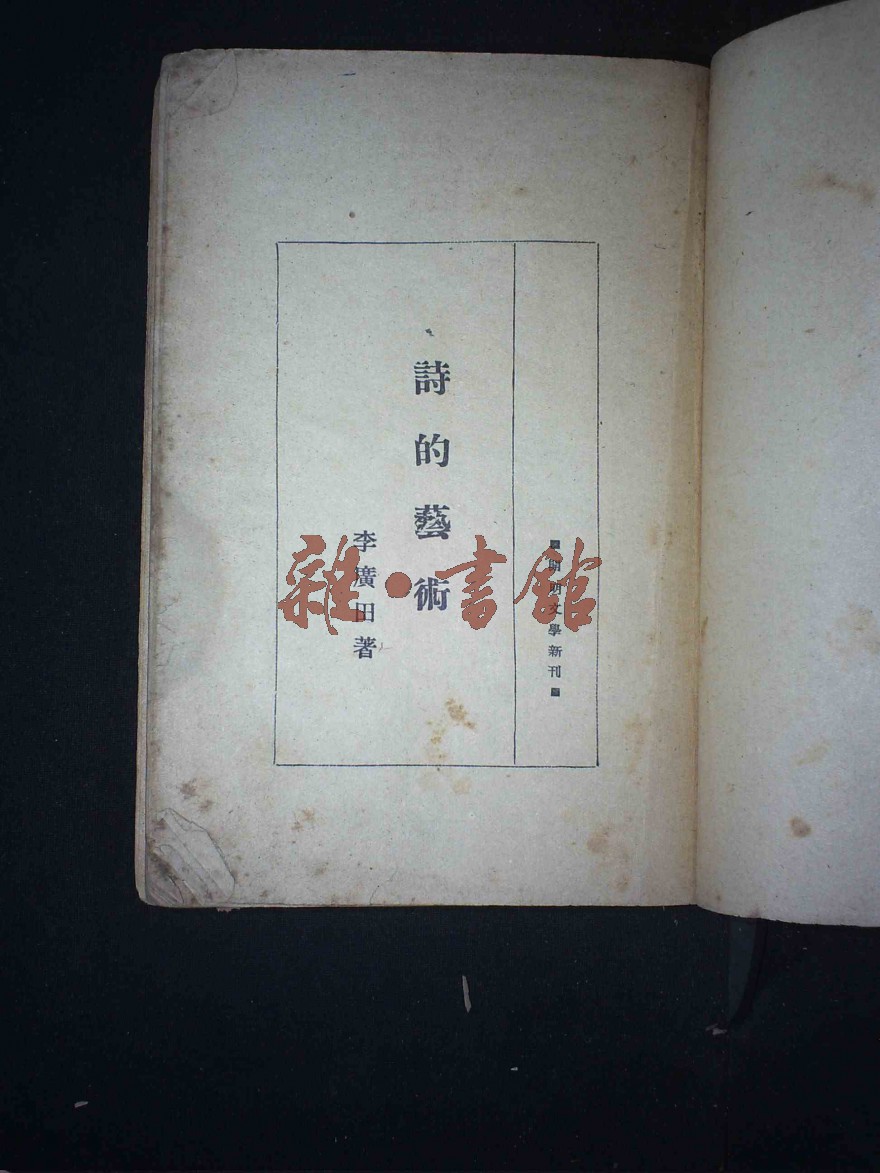 開明文學新刊
詩的藝術
李廣田著
雜·書館